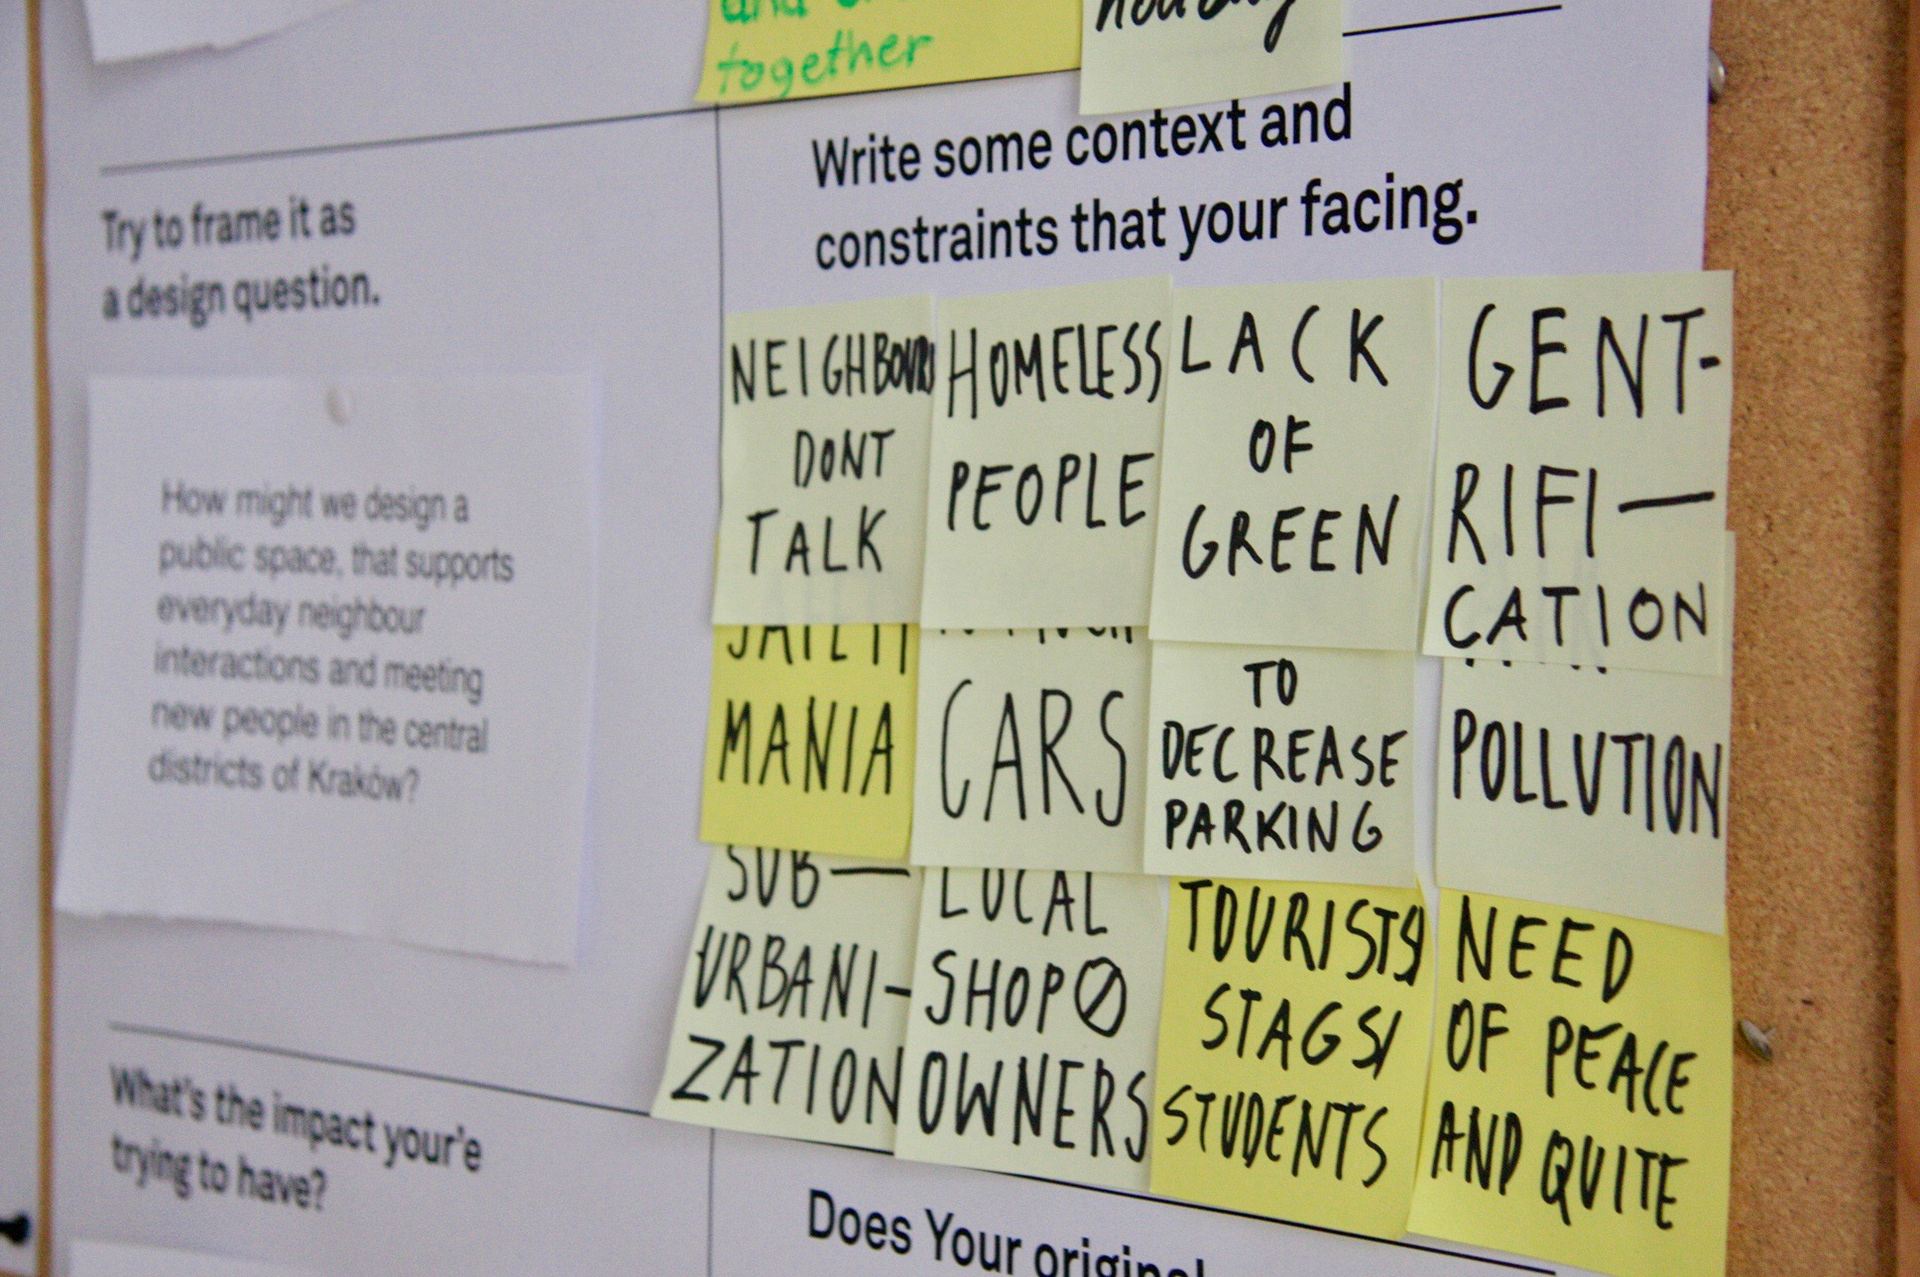 together
Try to frame it as
a design question.
How might we design a
public space, that supports
everyday neighbour
interactions and meeting
new people in the central
districts of Kraków?
What's the impact your'e
trying to have?
Write some context and
constraints that your facing.
NEIGHBOURS
DONT
TALK
HOMELESS
PEOPLE
LACK
OF
GREEN
GENT-
RIFI—
CATION
MANIA
CARS
TO
DECREASE
PARKING
POLLUTION
SUB—
URBANI-
ZATION
LOCAL
SHOP
OWNERS
TOURISTS/
STAGS/
STUDENTS
NEED
OF PEACE
AND QUITE
Does Your original